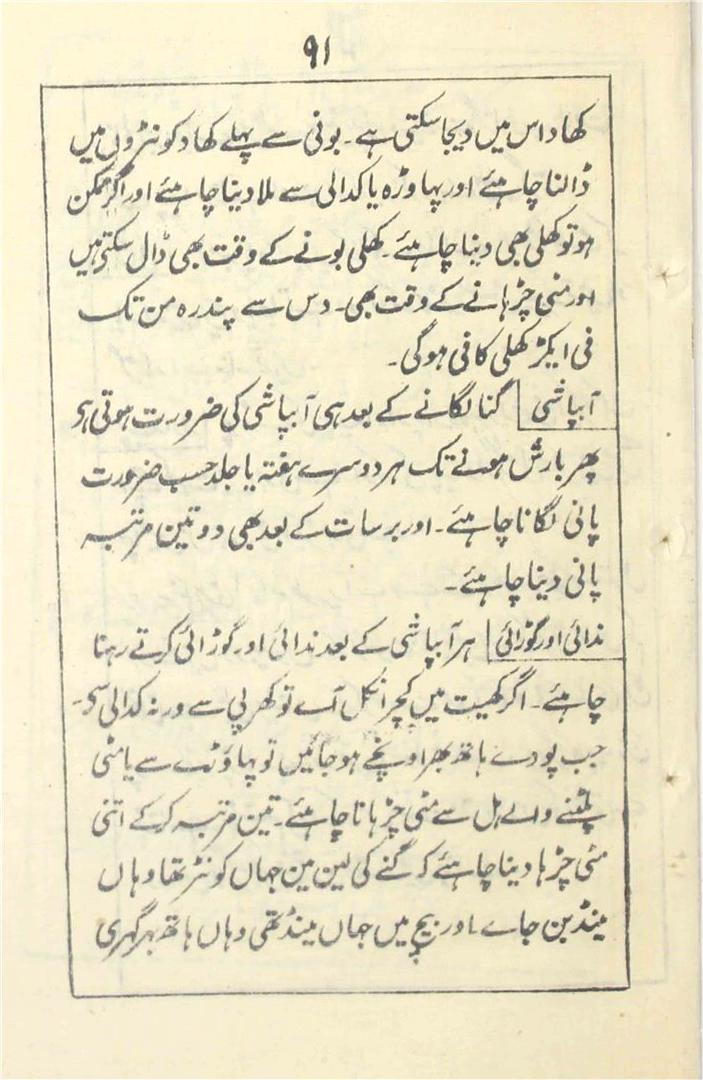 ۹۱
کھاد اس میں دیجا سکتی ہے۔ بونی سے پہلے کھاد کونٹروں میں
ڈالنا چاہئے اور پہاوڑہ یا کدالی سے ملا دینا چاہئے اور اگر ممکن
ہو تو کھلی بھی دینا چاہئے۔ کھلی بونے کے وقت بھی ڈال سکتے ہیں
اور مٹی چڑہانے کے وقت بھی۔ دس سے پندرہ من تک
فی ایکڑ کھلی کافی ہوگی۔
آبپاشی گنا لگانے کے بعد ہی آبپاشی کی ضرورت ہوتی ہو
پھر بارش ہونے تک ہر دوسرے ہفتہ یا جلد حسب ضرورت
پانی لگانا چاہئے۔ اور برسات کے بعد بھی دو تین مرتبہ
پانی دینا چاہئے۔
ندائی اور گوڑائی ہر آبپاشی کے بعد ندائی اور گوڑائی کرتے رہنا
چاہئے۔ اگر کھیت میں کچرا نکل آے تو کھرپی سے ورنہ کدالی سی۔
جب پودے ہاتھ بھر اونچے ہو جائیں تو پہاوٹے سے یا مٹی
پلٹنے والے ہل سے مٹی چڑہانا چاہئے۔ تین مرتبہ کرکے اتنی
مٹی چڑہا دینا چاہئے کہ گنے کی لین مین جہاں کونٹر تھا وہاں
مینڈ بن جاے اور بیچ میں جہاں مینڈ تھی وہاں ہاتھ بہر گہری